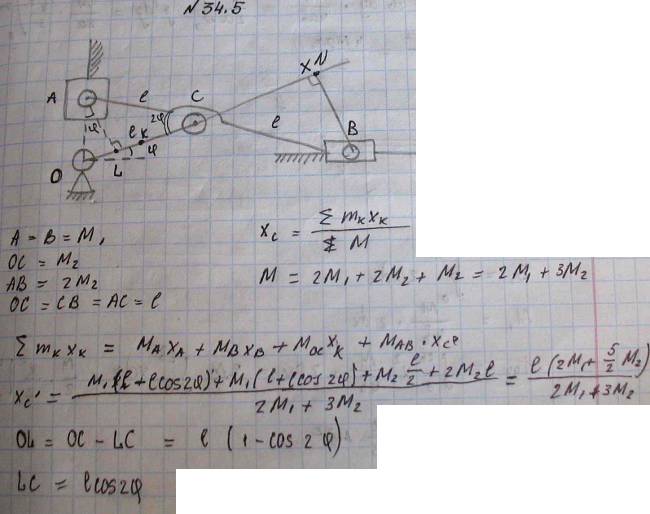 N 34.5
A
l
C
X
N
2φ
l
B
φ
l
K
φ
O
L
A = B = M₁
OC = M₂
AB = 2M₂
OC = CB = AC = l
x_c = Σ m_k x_k / M
M = 2M₁ + 2M₂ + M₂ = 2M₁ + 3M₂
Σ m_k x_k = M_A x_A + M_B x_B + M_OC x_K + M_AB · x_C
x_c' = (M₁(l - l cos2φ) + M₁(l + l cos2φ) + M₂ l/2 + 2M₂ l) / (2M₁ + 3M₂) = l(2M₁ + 5/2 M₂) / (2M₁ + 3M₂)
OL = OC - LC = l (1 - cos 2φ)
LC = l cos2φ